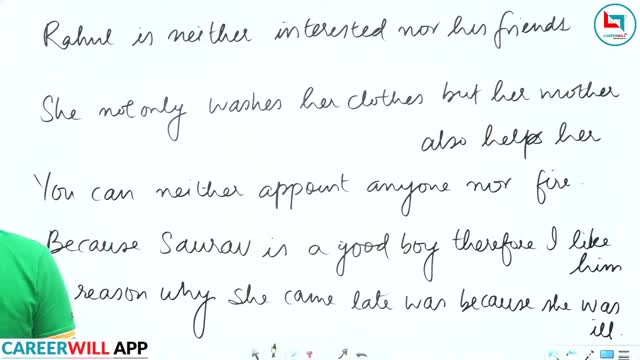 CAREERWILL
Rahul is neither interested nor his friends
She not only washes her clothes but her mother
also helps her
You can neither appoint anyone nor fire.
Because Saurav is a good boy therefore I like
him
reason why she came late was because she was
ill.
CAREERWILL APP